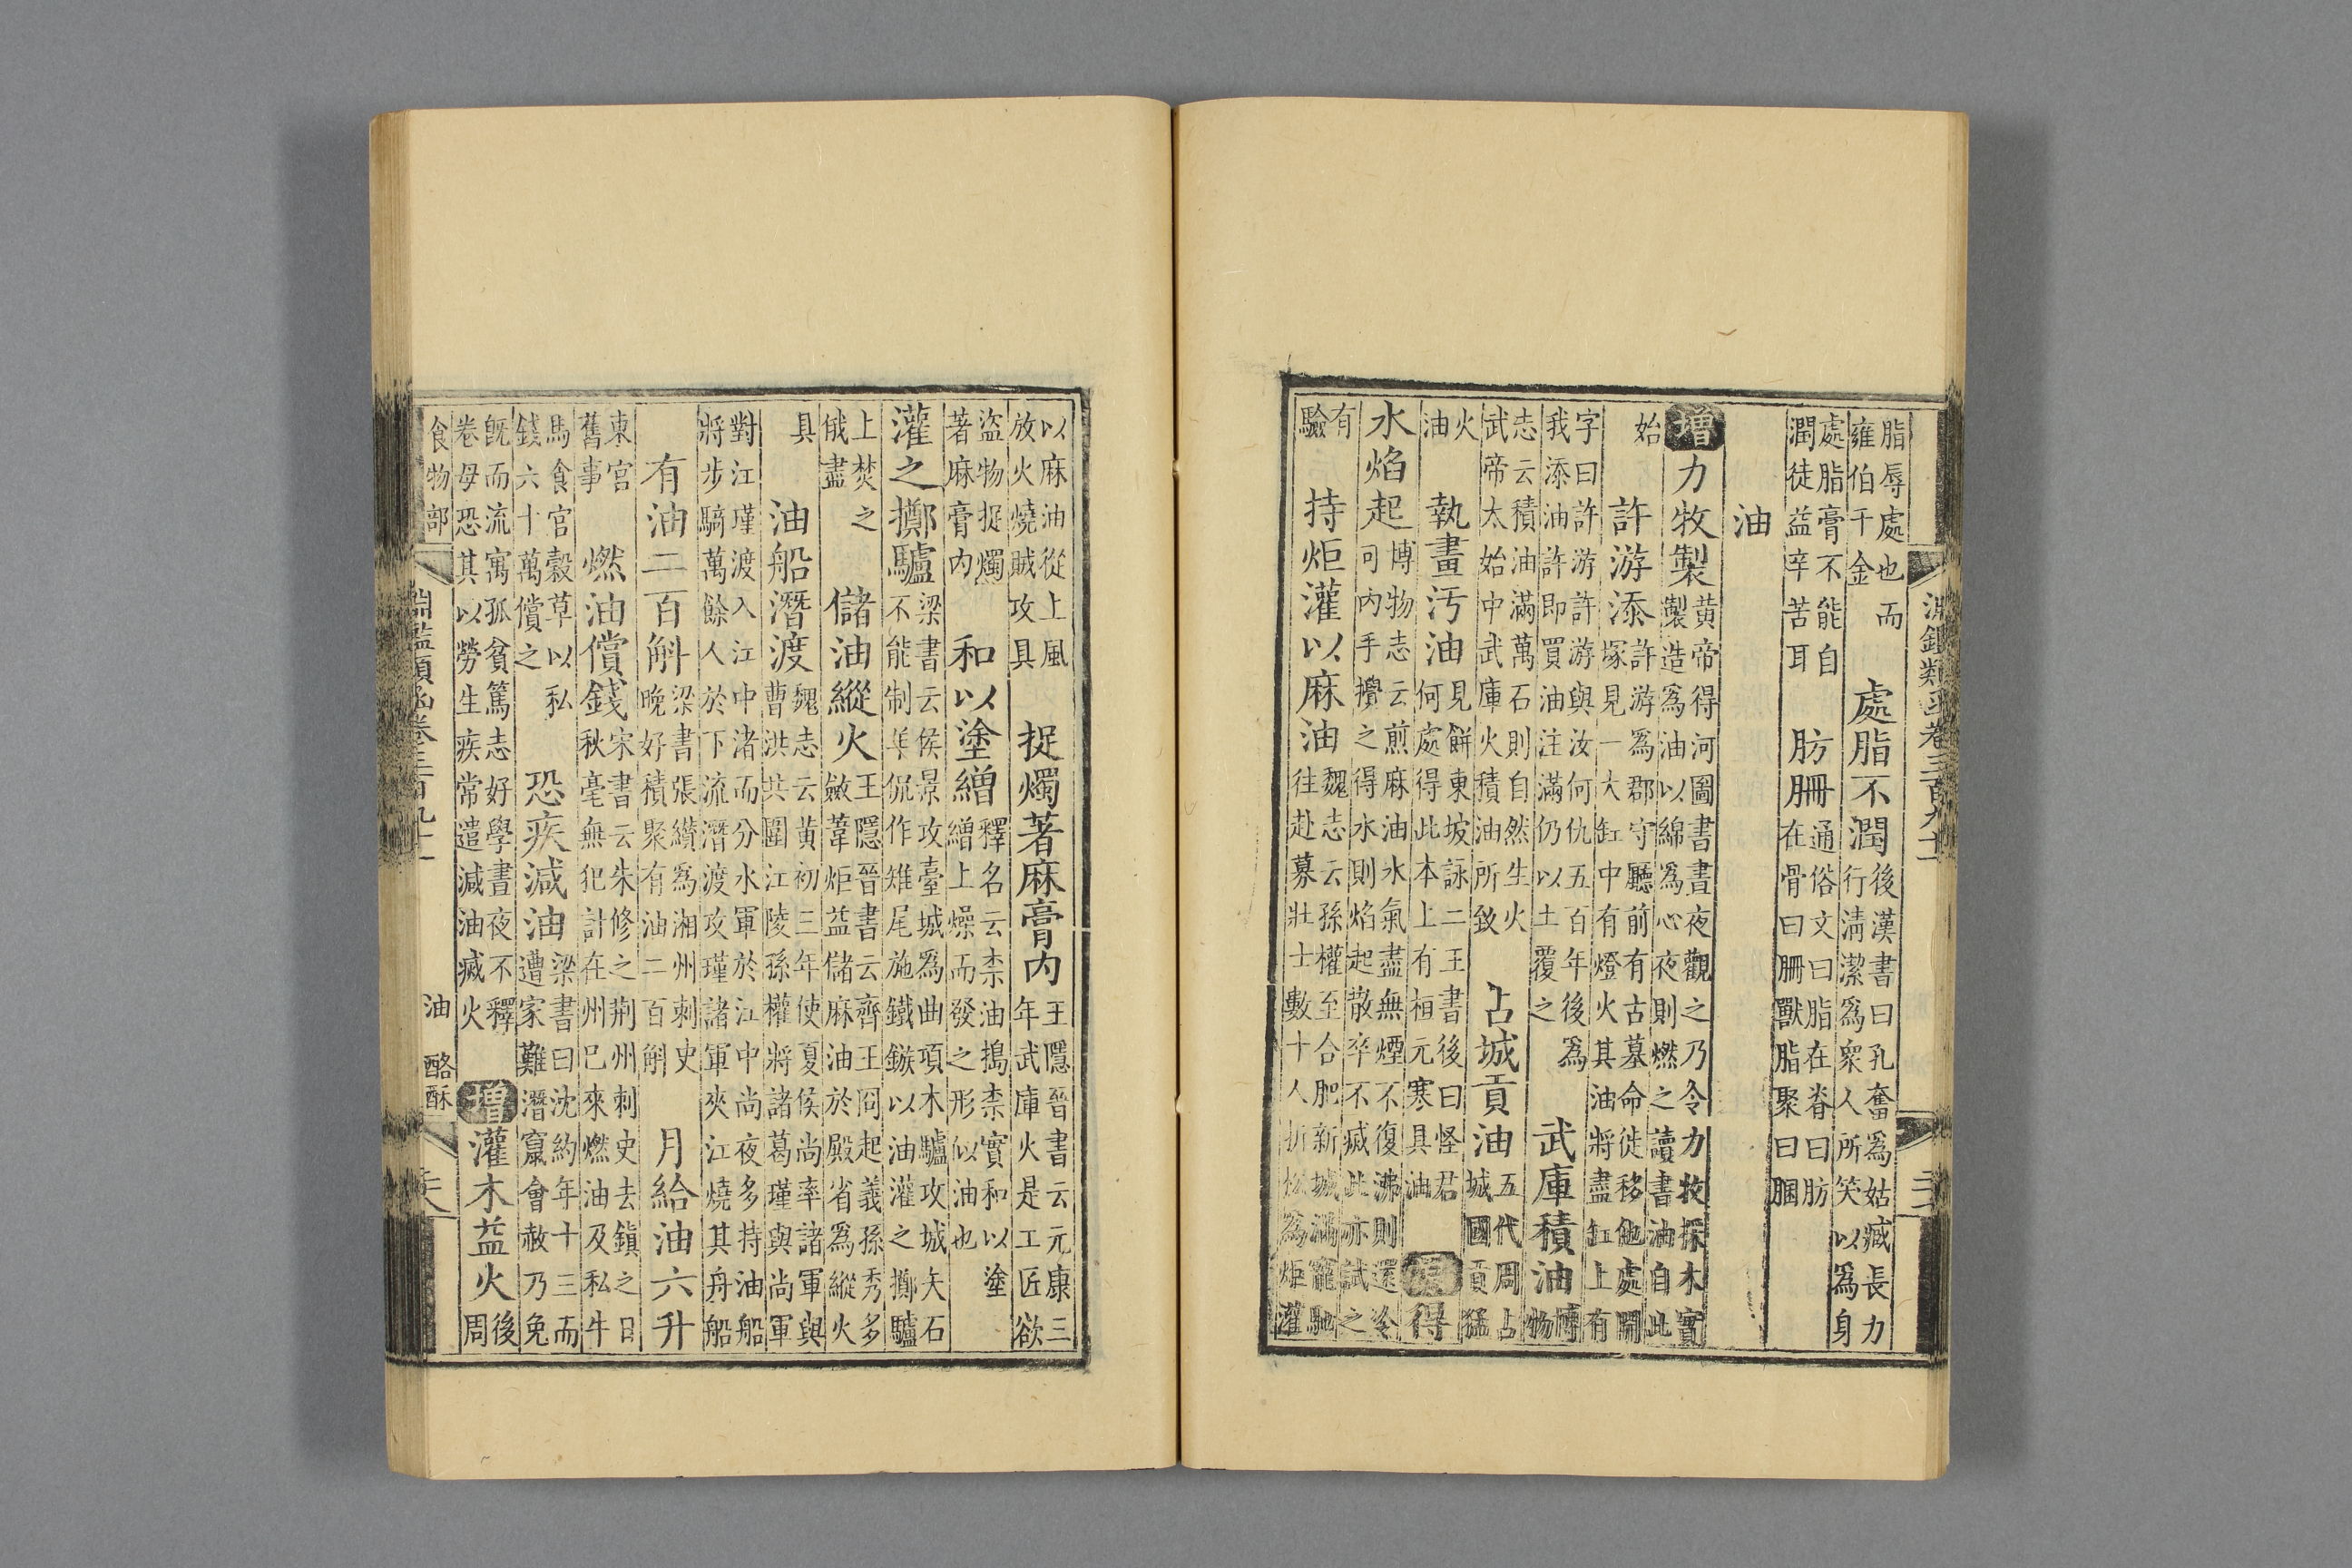 淵鑑類函卷三百九十一
脂辱處也而
雍伯千金
處脂不潤
後漢書曰孔奮爲姑臧長力
行清潔爲衆人所笑以爲身
處脂膏不能自
潤徒益辛苦耳
肪𦙱
通俗文曰脂在脊曰肪
在骨曰𦙱獸脂聚曰䐃
油
增力牧製
黃帝得河圖書書夜觀之乃令力牧採木實
製造爲油以綿爲心夜則燃之讀書油自此
始
許游添
許游爲郡守廳前有古墓命徙移他處開
塚見一大缸中有燈火其油將盡缸上有
字曰許游許游與汝何仇五百年後爲
我添油許即買油注滿仍以土覆之
武庫積油
博
物
志云積油滿萬石則自然生火
武帝太始中武庫火積油所致
占城貢油
五代周占
城國貢猛
火
油
執畫汚油
見餅東坡詠二王書後曰怪君
何處得此本上有桓元寒具油
原得
水焰起
博物志云煎麻油水氣盡無煙不復沸則還冷
可內手攪之得水則焰起散卒不滅此亦試之
有
驗
持炬灌以麻油
魏志云孫權至合肥新城滿寵馳
往赴募壯士數十人折松爲炬灌
以麻油從上風
放火燒賊攻具
捉燭著麻膏內
王隱晉書云元康三
年武庫火是工匠欲
盜物捉燭
著麻膏內
和以塗繒
釋名云柰油搗柰實和以塗
繒上燥而發之形似油也
灌之擲驢
梁書云侯景攻臺城爲曲項木驢攻城矢石
不能制羊侃作雉尾施鐵鏃以油灌之擲驢
上焚之
俄盡
儲油縱火
王隱晉書云齊王冏起義孫秀多
斂葦炬益儲麻油於殿省爲縱火
具
油船潛渡
魏志云黃初三年使夏侯尚率諸軍與
曹洪共圍江陵孫權將諸葛瑾與尚軍
對江瑾渡入江中渚而分水軍於江中尚夜多持油船
將步騎萬餘人於下流潛渡攻瑾諸軍夾江燒其舟船
有油二百斛
梁書張纘爲湘州刺史
晚好積聚有油二百斛
月給油六升
東宮
舊事
燃油償錢
宋書云朱修之荊州刺史去鎮之日
秋毫無犯計在州已來燃油及私牛
馬食官穀草以私
錢六十萬償之
恐疾減油
梁書曰沈約年十三而
遭家難潛竄會赦乃免
既而流寓孤貧篤志好學書夜不釋
卷母恐其以勞生疾常遣減油滅火
增灌木益火
後
周
食物部
淵鑑類函卷三百九十一
油 酪酥